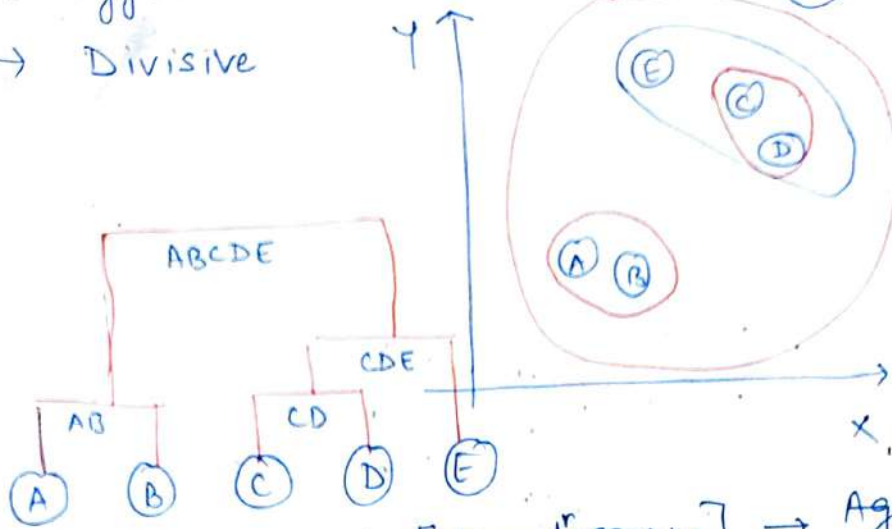 → Divisive
Y
E
C
D
A
B
ABCDE
CDE
AB
CD
X
A
B
C
D
E
→ Ag